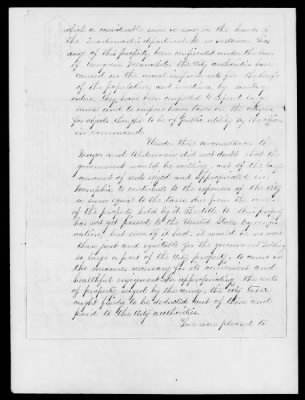 which a considerable sum is now in the hands of
the Quartermaster's department. In no instance has
any of this property been confiscated under the law
of Congress. Meanwhile the City authorities have
carried on the usual improvements for the benefit
of the population, and in addition by military
orders, they have been compelled to expend large
sums and to exempt from taxation
for objects thought to be of public utility by the officer
in command.
Under these circumstances the
Mayor and Aldermen did not doubt that the
government would be willing, out of the large
amount of rents seized and appropriated in
Memphis, to contribute to the expenses of the City
a sum equal to the taxes due from the owners
of the property held by it. The title to this property
has not yet passed to the United States by confis-
cation; but even if it had, it would be no more
than just and equitable for the government holding
so large a part of the City property, to assist in
the measures necessary for its convenient and
healthful enjoyment. In appropriating the rents
of property seized by the army, the City taxes
ought fairly to be deducted out of them and
paid to the City authorities.
You were pleased to